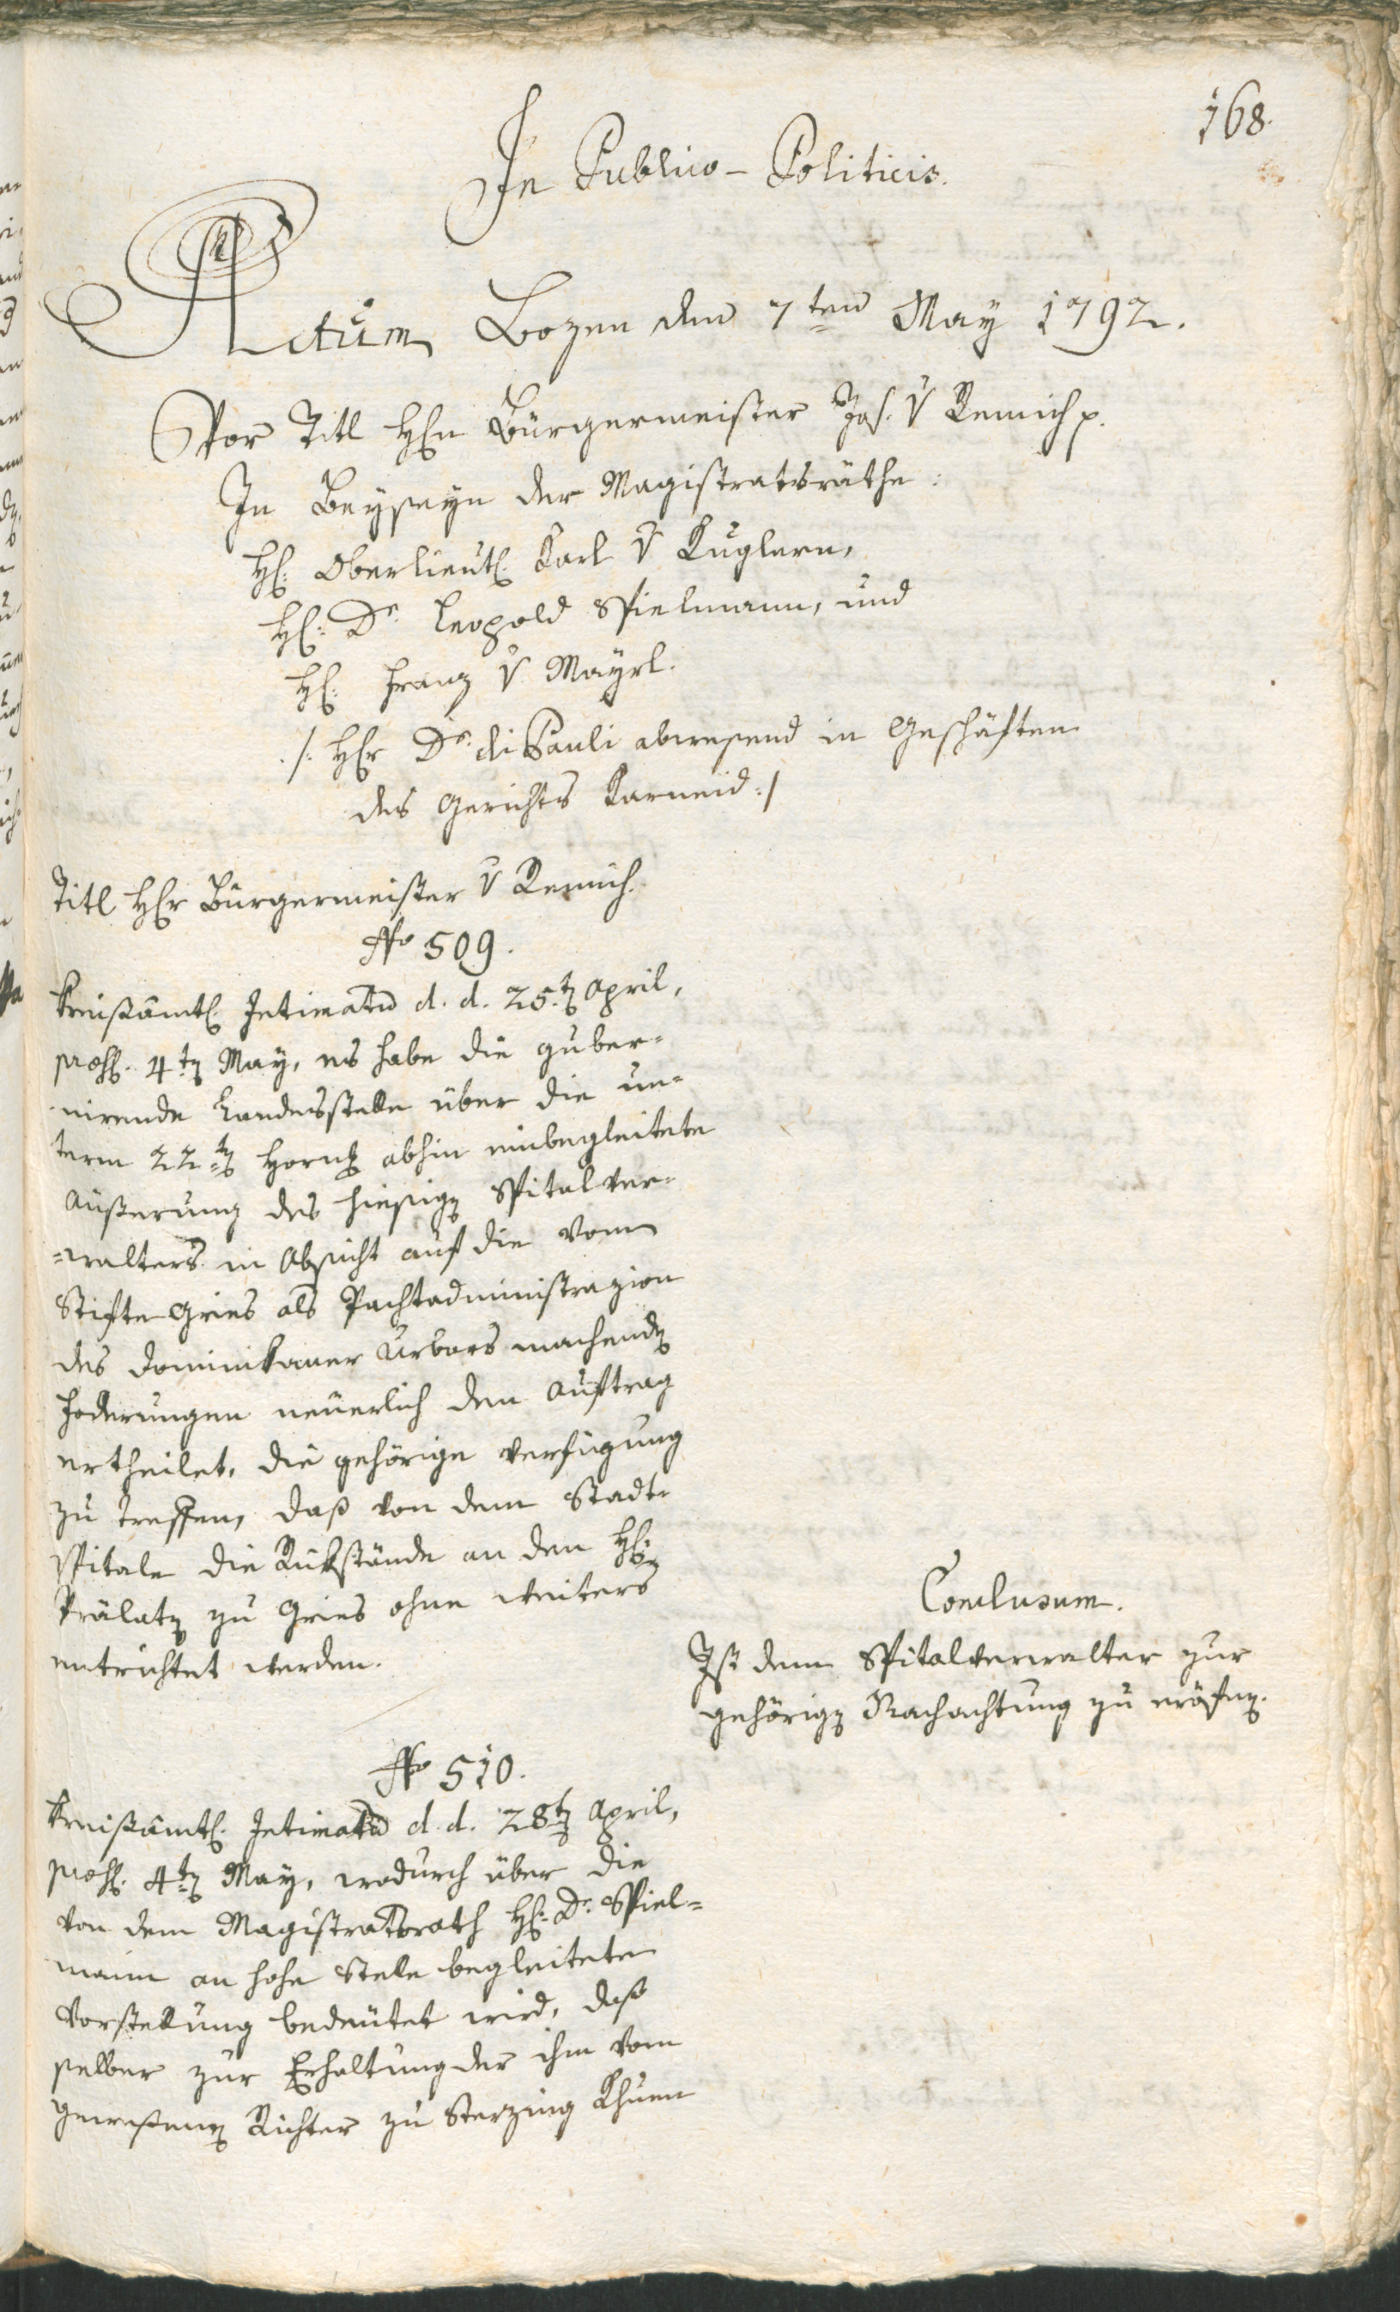 168.
In Publico-Politicis.
Actum Bozen den 7ten May 1792.
Vor Titl Hrn Bürgermeister Jos. v Remich p.
In Beyseyn der Magistratsräthe:
H: Oberlieut: Karl v Kuglern,
H: Dr. Leopold Spielmann, und
H: Franz v Mayrl.
./: Hr Dr. di Pauli abwesend in Geschäften
des Gerichts Karneid :/
Titl Hr Bürgermeister v Remich.
No 509.
Kreißämtl. Intimatū d. d. 25.tn April,
präs. 4tn May, es habe die guber-
nirende Landesstelle über die un-
term 22tn Horng abhin einbegleitete
Äußerung des hiesign Spitalver-
=walters in Absicht auf die vom
Stifte Gries als Pachtadministrazion
des Dominikaner Urbars machendn
Foderungen neuerlich den Auftrag
ertheilet, die gehörige Verfügung
zu treffen, daß von dem Stadt-
spitale die Rükstände an den H:n
Prälatn zu Gries ohne weiters
entrichtet werden.
Conclusum.
Ist dem Spitalverwalter zur
gehörign Nachachtung zu eröfnn.
No 510.
Kreißämtl. Intimatū d. d. 28tn April,
präs. 4tn May, wodurch über die
von dem Magistratsrath H: Dr. Spiel=
mann an hohe Stelle begleitete
Vorstellung bedeutet wird, daß
selber zur Erhaltung der ihm vom
gewesenen Richter zu Sterzing Khuen